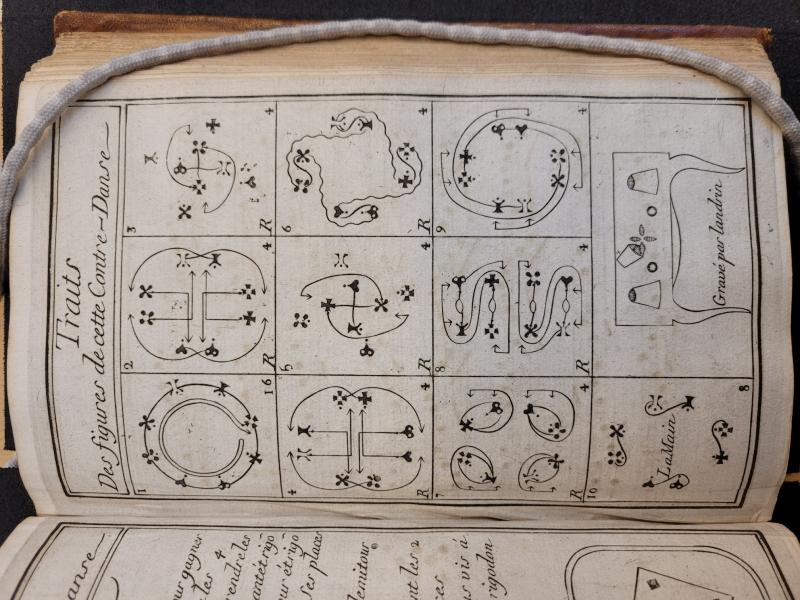 anse
our gagner
les 4
rendre les
ses places
demitour
nt les 2
ces
s vis à
rigodon
Traits
Des figures de cette Contre-Danse
1
16
2
R 4
3
R 4
4
R 4
5
R
6
R 4
7
R 4
8
R 4
9
R 4
10
La Main
8
Gravé par landrin